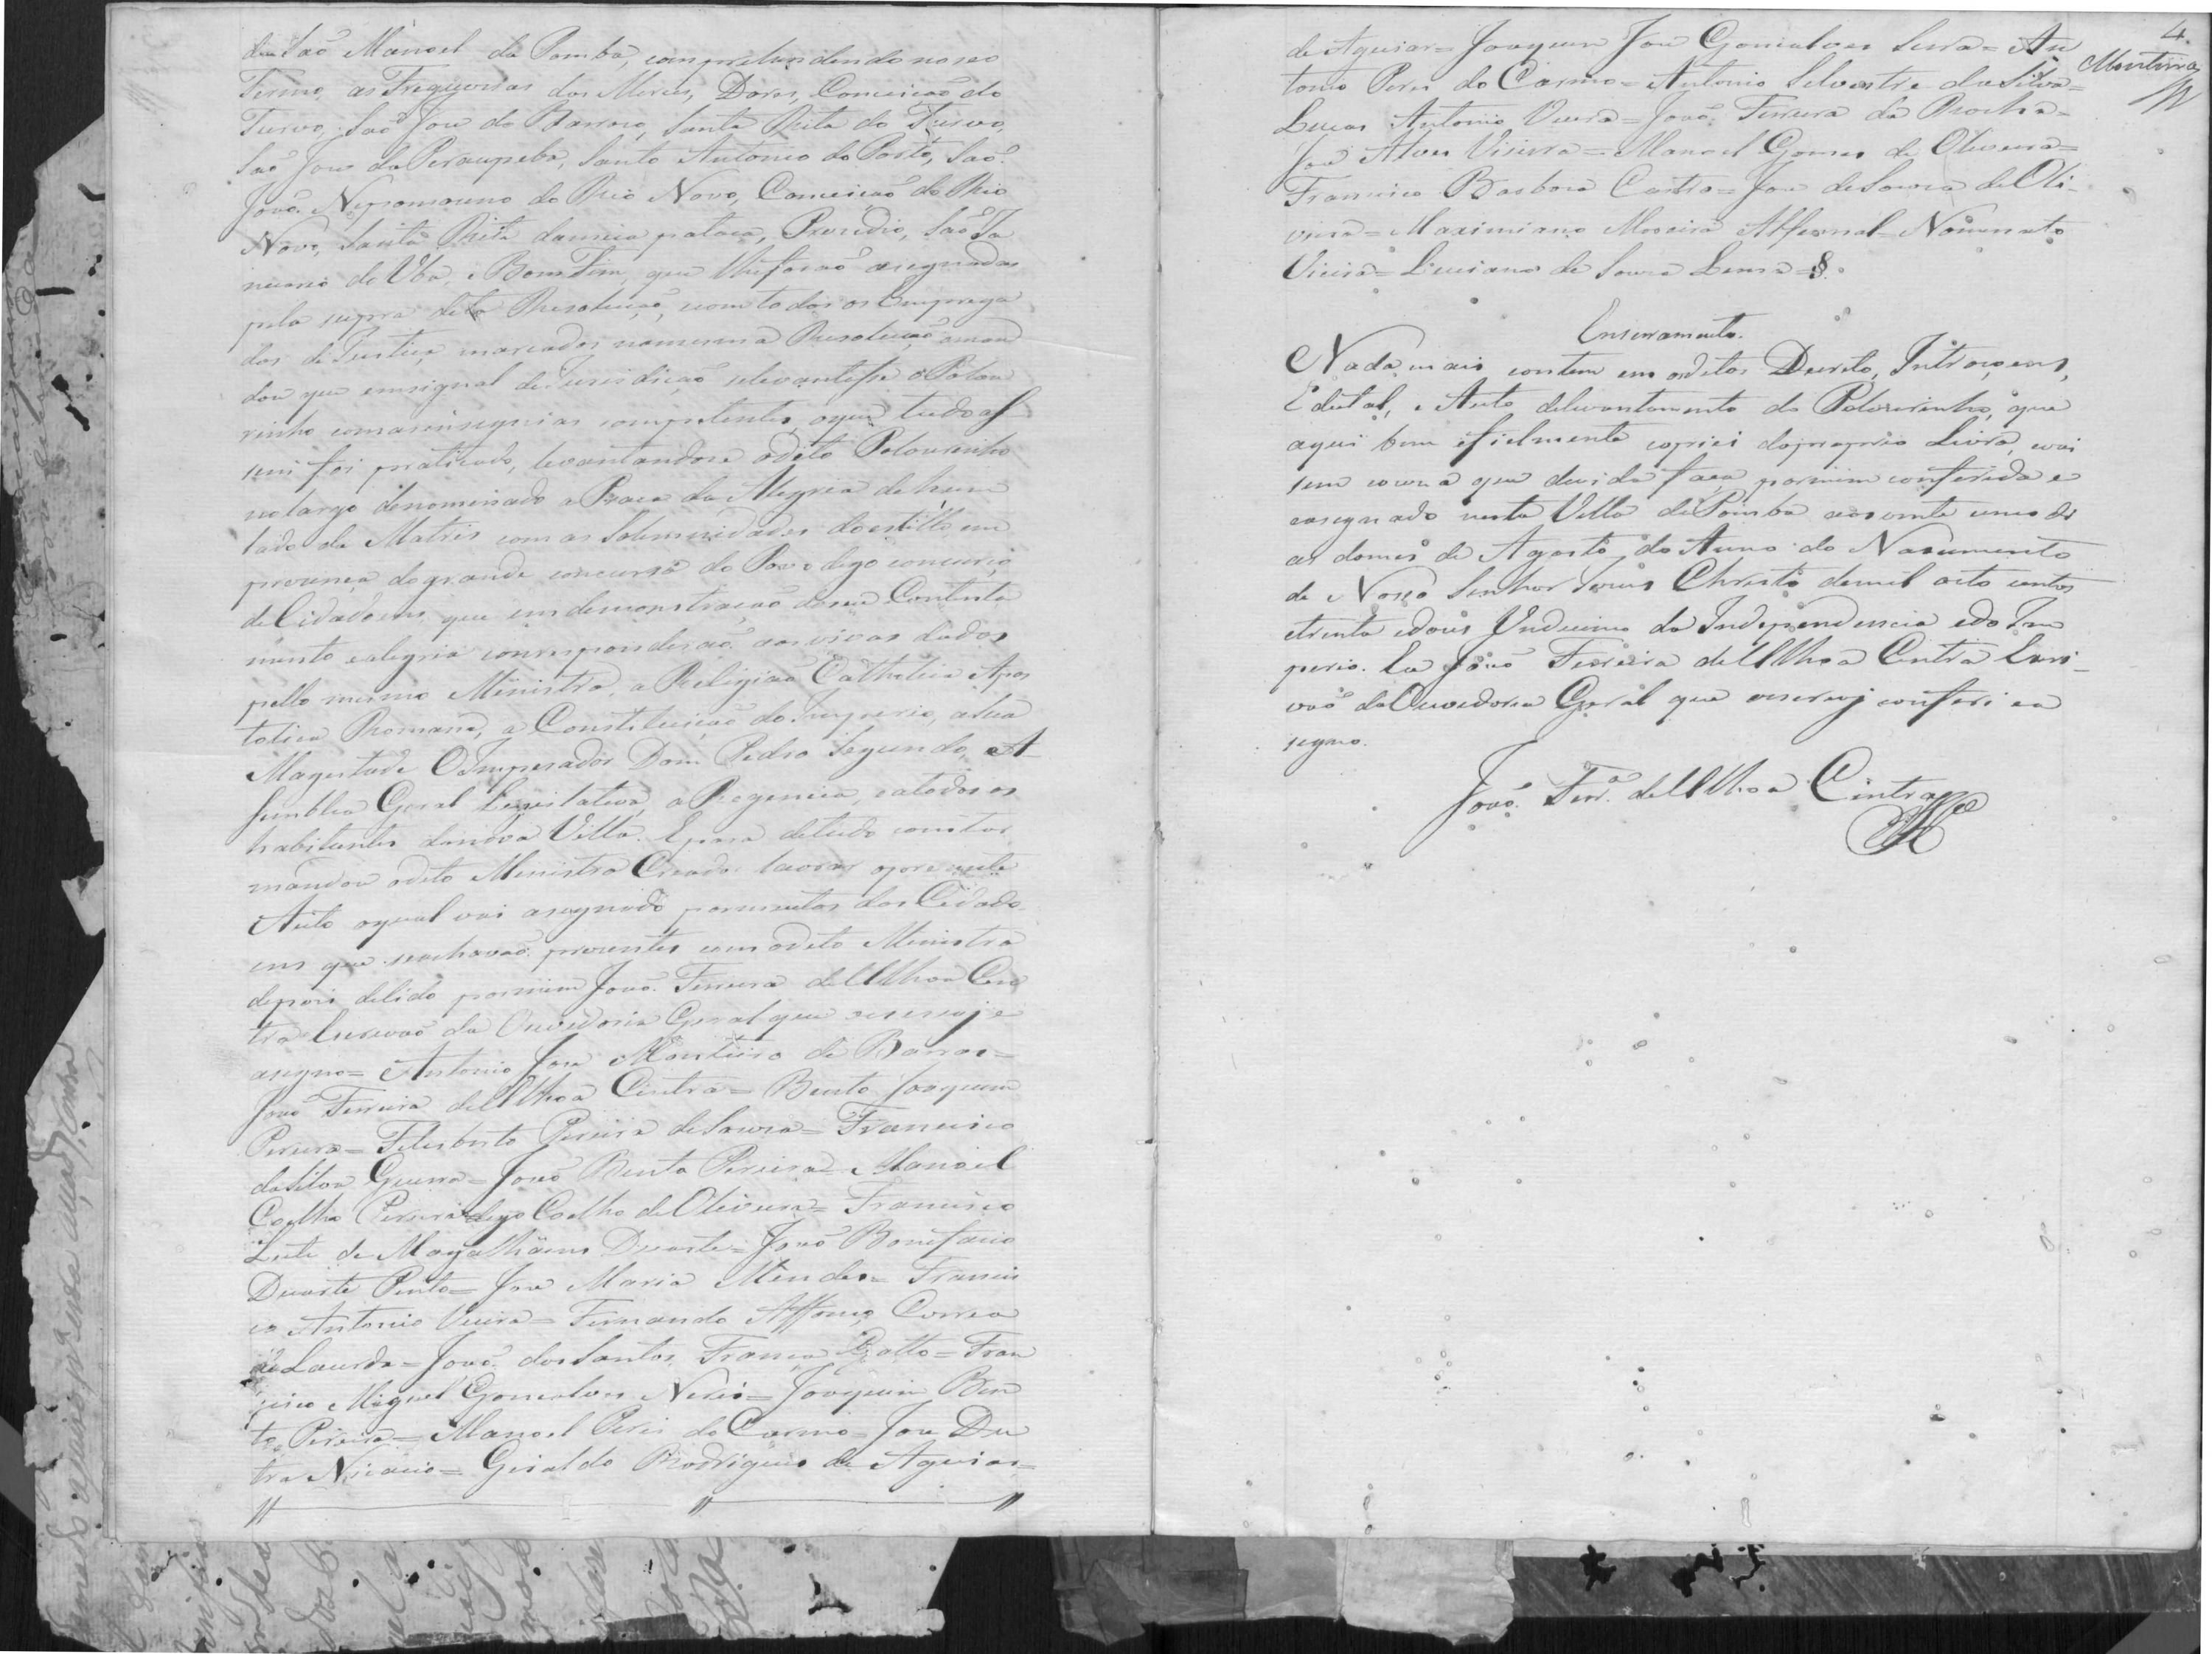 de Saõ Manoel da Pomba, comprehendendo no seo
Termo, as Freguezias das Merces, Dores, Conceicaõ do
Turvo, Saõ Joze do Barrozo, Santa Rita do Turvo,
Saõ Joze da Peraupeba, Santo Antonio do Porto, Saõ
Joaõ Nepomoceno do Rio Novo, Conceicaõ do Rio
Novo, Santa Rita da meia pataca, Prezidio, Saõ Ja
nuario do Uba, e Bom Fim, que lhe foraõ asegnadas
pela supra dita Rezoluçaõ, com todos os Emprega
dos de Justiça marcados na mesma Rezoluçaõ e man
dou que em signal de Jurisdiçaõ se levantasse o Pelou
rinho com as insignias competentes, o que tudo as
sim foi praticado, levantandose o dito Pelourinho
no largo denominado a Praca da Alegria de hum
lado da Matris com as Solemnidades do estillo em
prezença de grande concurso de Povo digo concurço
de Cidadoens, que em demonstraçaõ de seu Contenta
mento e alegria corresponderaõ aos vivas dados
pello mesmo Ministro, a Religiaõ Catholica Apos
tolica Romana, a Constituiçaõ do Imperio, a Sua
Magestade O Imperador Dom Pedro Segundo, A
ssemblea Geral Legislativa, a Regencia, e a todos os
habitantes da nova Villa. E para de tudo constar
mandou o dito Ministro Creador lavrar o prezente
Auto o qual vai asegnado por muitos dos Cidado
ens que se achavaõ prezentes com o dito Ministro
depois de lido por mim Joaõ Ferreira de Ulhoa Cin
tra Escrivaõ da Ouvedoria Geral que o escrevj e
asegno = Antonio Joze Monteiro de Barros =
Joaõ Ferreira de Ulhoa Cintra = Bento Joaquim
Pereira = Felisberto Pereira de Souza = Francisco
da Silva Guerra = Joaõ Bento Pereira = Manoel
Coelho Pereira digo Coelho de Oliveira = Francisco
Leite de Magalhäens Duarte = Joaõ Bonifacio
Duarte Pinto = Joze Maria Mendes = Francis
co Antonio Vieira = Fernando Affonço Correa
de Lacerda = Joaõ dos Santos França Gatto = Fran
cisco Miguel Goncalves Neves = Joaquim Ben
to Pereira = Manoel Peres do Carmo = Joze Du
tra Nicacio = Geraldo Rodrigues de Aguiar =
4.
Monteiro
de Aguiar = Joaquim Joze Goncalves Serra = An
tonio Peres do Carmo = Antonio Selvestre da Silva =
Lucas Antonio Vieira = Joaõ Ferreira da Rocha =
Joze Alves Vieira = Manoel Gomes de Oliveira =
Francisco Barboza Castro = Joze de Souza de Oli-
veira = Maximiano Moreira = Nonnato
Vieira = Luciano de Souza Lima = §.
Enserramento.
Nada mais contem em os ditos Decreto, Introçoens,
Edital, e Auto delevantamento do Pelourinho, que
aqui bem e fielmente copiei do proprio Livro, e vai
sem couza que duvida faca por mim conferida e
asegnado nesta Villa da Pomba aos vinte e um di
as do mes de Agosto, do Anno do Nascimento
de Nosso Senhor Jezus Christo de mil oito centos
e trinta e dous Undecimo da Independencia e do Im
perio. Eu Joaõ Ferreira de Ulhoa Cintra Escri-
vaõ da Ouvedoria Geral que o escrevj conferi e a
segno.
Joaõ Ferr.ª de Ulhoa Cintra